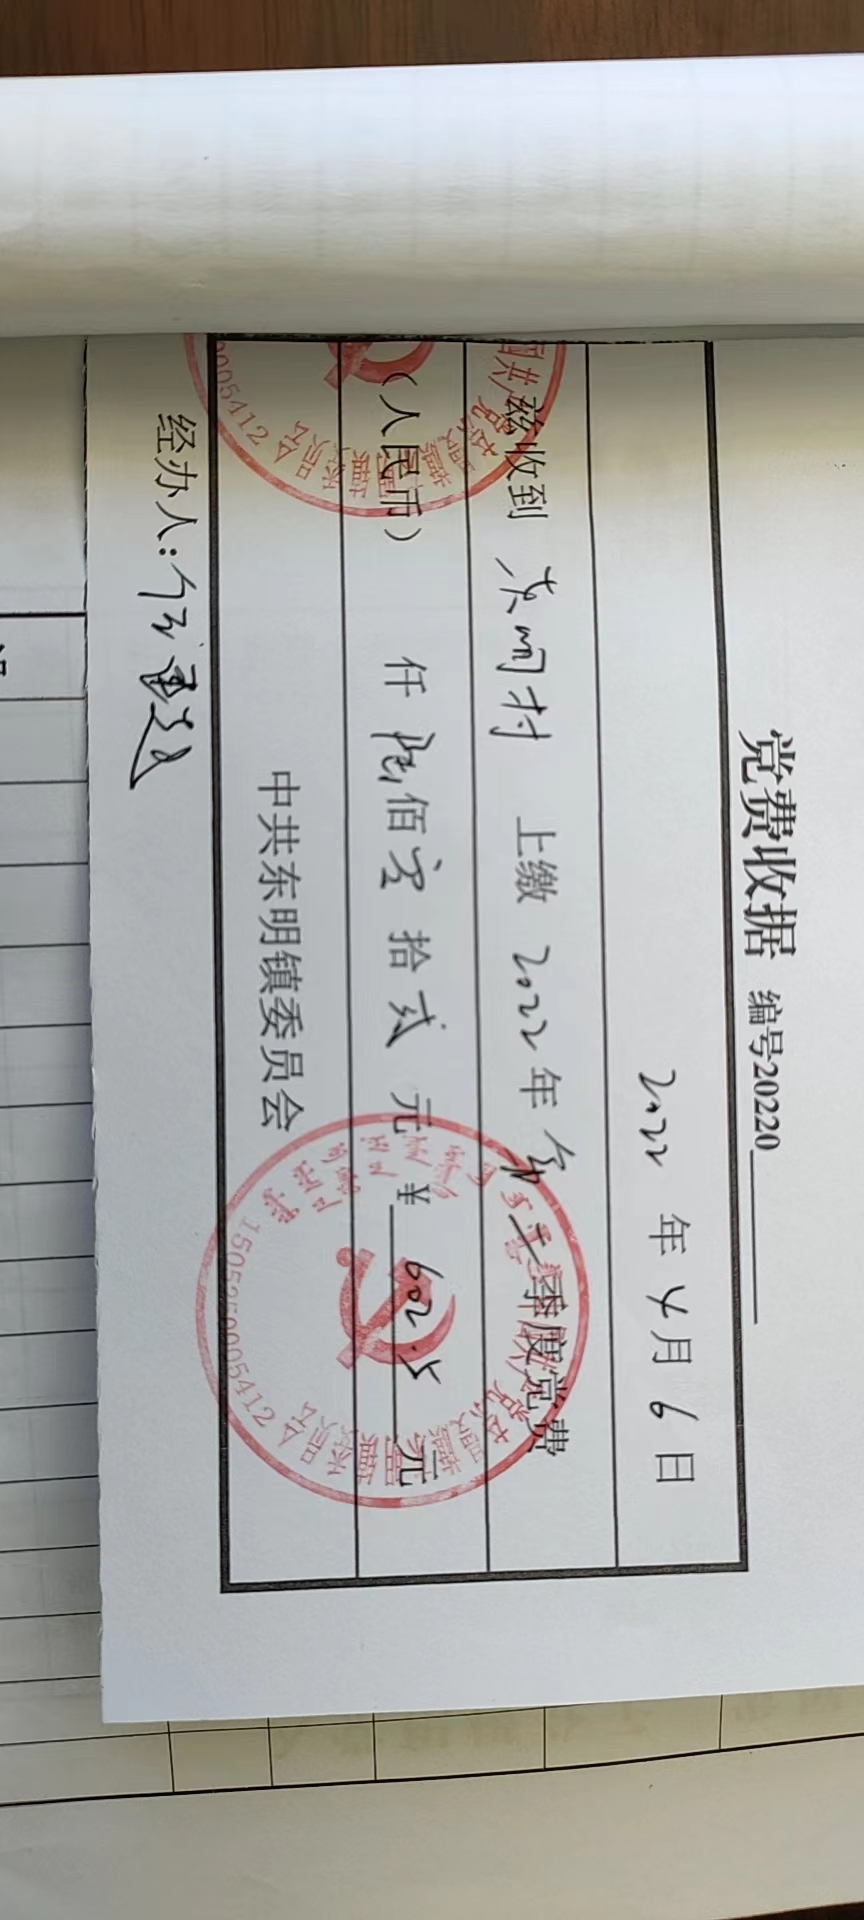 党费收据 编号20220
2022 年 4 月 6 日
兹收到 村 上缴 2022 年 第一季度党费
(人民币) 仟 陆 佰 零 拾 贰 元 ¥ 602.5 元
中共东明镇委员会
经办人:
1505250005412
0005412